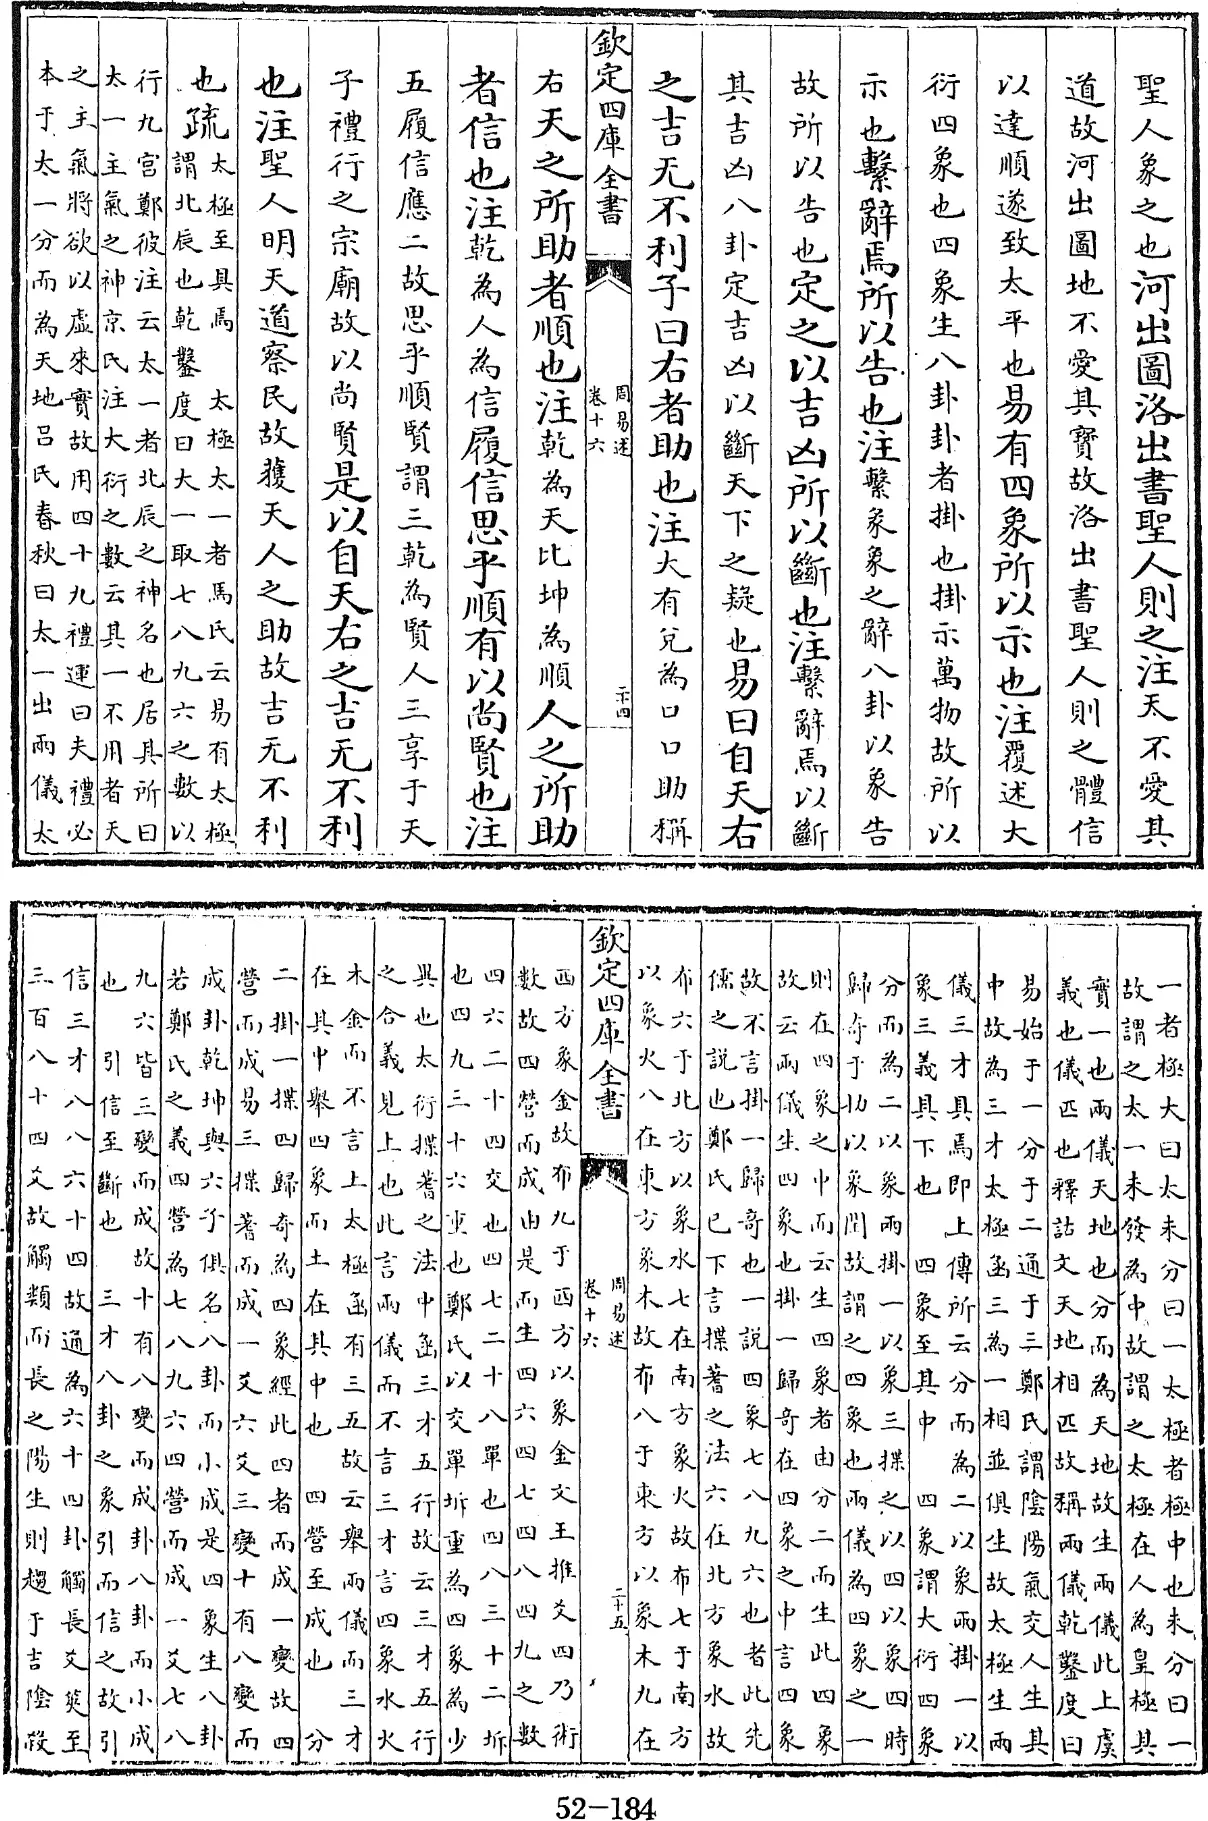 聖人象之也河出圖洛出書聖人則之注天不愛其
道故河出圖地不愛其寶故洛出書聖人則之體信
以達順遂致太平也易有四象所以示也注覆述大
衍四象也四象生八卦卦者掛也掛示萬物故所以
示也繫辭焉所以告也注繫彖象之辭八卦以象告
故所以告也定之以吉凶所以斷也注繫辭焉以斷
其吉凶八卦定吉凶以斷天下之疑也易曰自天右
之吉无不利子曰右者助也注大有兌為口口助稱
欽定四庫全書
周易述
卷十六
二十四
右天之所助者順也注乾為天比坤為順人之所助
者信也注乾為人為信履信思乎順有以尚賢也注
五履信應二故思乎順賢謂三乾為賢人三享于天
子禮行之宗廟故以尚賢是以自天右之吉无不利
也注聖人明天道察民故獲天人之助故吉无不利
也疏
太極至具焉 太極太一者馬氏云易有太極
謂北辰也乾鑿度曰大一取七八九六之數以
行九宮鄭彼注云太一者北辰之神名也居其所曰
太一主氣之神京氏注大衍之數云其一不用者天
之主氣將欲以虛來實故用四十九禮運曰夫禮必
本于太一分而為天地呂氏春秋曰太一出兩儀太
一者極大曰太未分曰一太極者極中也未分曰一
故謂之太一未發為中故謂之太極在人為皇極其
實一也兩儀天地也分而為天地故生兩儀此上虞
義也儀匹也釋詁文天地相匹故稱兩儀乾鑿度曰
易始于一分于二通于三鄭氏謂陰陽氣交人生其
中故為三才太極函三為一相並俱生故太極生兩
儀三才具焉即上傳所云分而為二以象兩掛一以
象三義具下也 四象至其中 四象謂大衍四象
分而為二以象兩掛一以象三揲之以四以象四時
歸奇于扐以象閏故謂之四象也兩儀為四象之一
則在四象之中而云生四象者由分二而生此四象
故云兩儀生四象也掛一歸奇在四象之中言四象
故不言掛一歸奇也一説四象七八九六也者此先
儒之説也鄭氏已下言揲蓍之法六在北方象水故
布六于北方以象水七在南方象火故布七于南方
以象火八在東方象木故布八于東方以象木九在
欽定四庫全書
周易述
卷十六
二十五
西方象金故布九于西方以象金文王推爻四乃術
數故四營而成由是而生四六四七四八四九之數
四六二十四交也四七二十八單也四八三十二坼
也四九三十六重也鄭氏以交單坼重為四象為少
異也太衍揲蓍之法中函三才五行故云三才五行
之合義見上也此言兩儀而不言三才言四象水火
木金而不言上太極函有三五故云舉兩儀而三才
在其中舉四象而土在其中也 四營至成也 分
二掛一揲四歸奇為四象經此四者而成一變故四
營而成易三揲蓍而成一爻六爻三變十有八變而
成卦乾坤與六子俱名八卦而小成是四象生八卦
若鄭氏之義四營為七八九六四營而成一爻七八
九六皆三變而成故十有八變而成卦八卦而小成
也 引信至斷也 三才八卦之象引而信之故引
信三才八八六十四故通為六十四卦觸長爻筴至
三百八十四爻故觸類而長之陽生則趨于吉陰殺
52-184